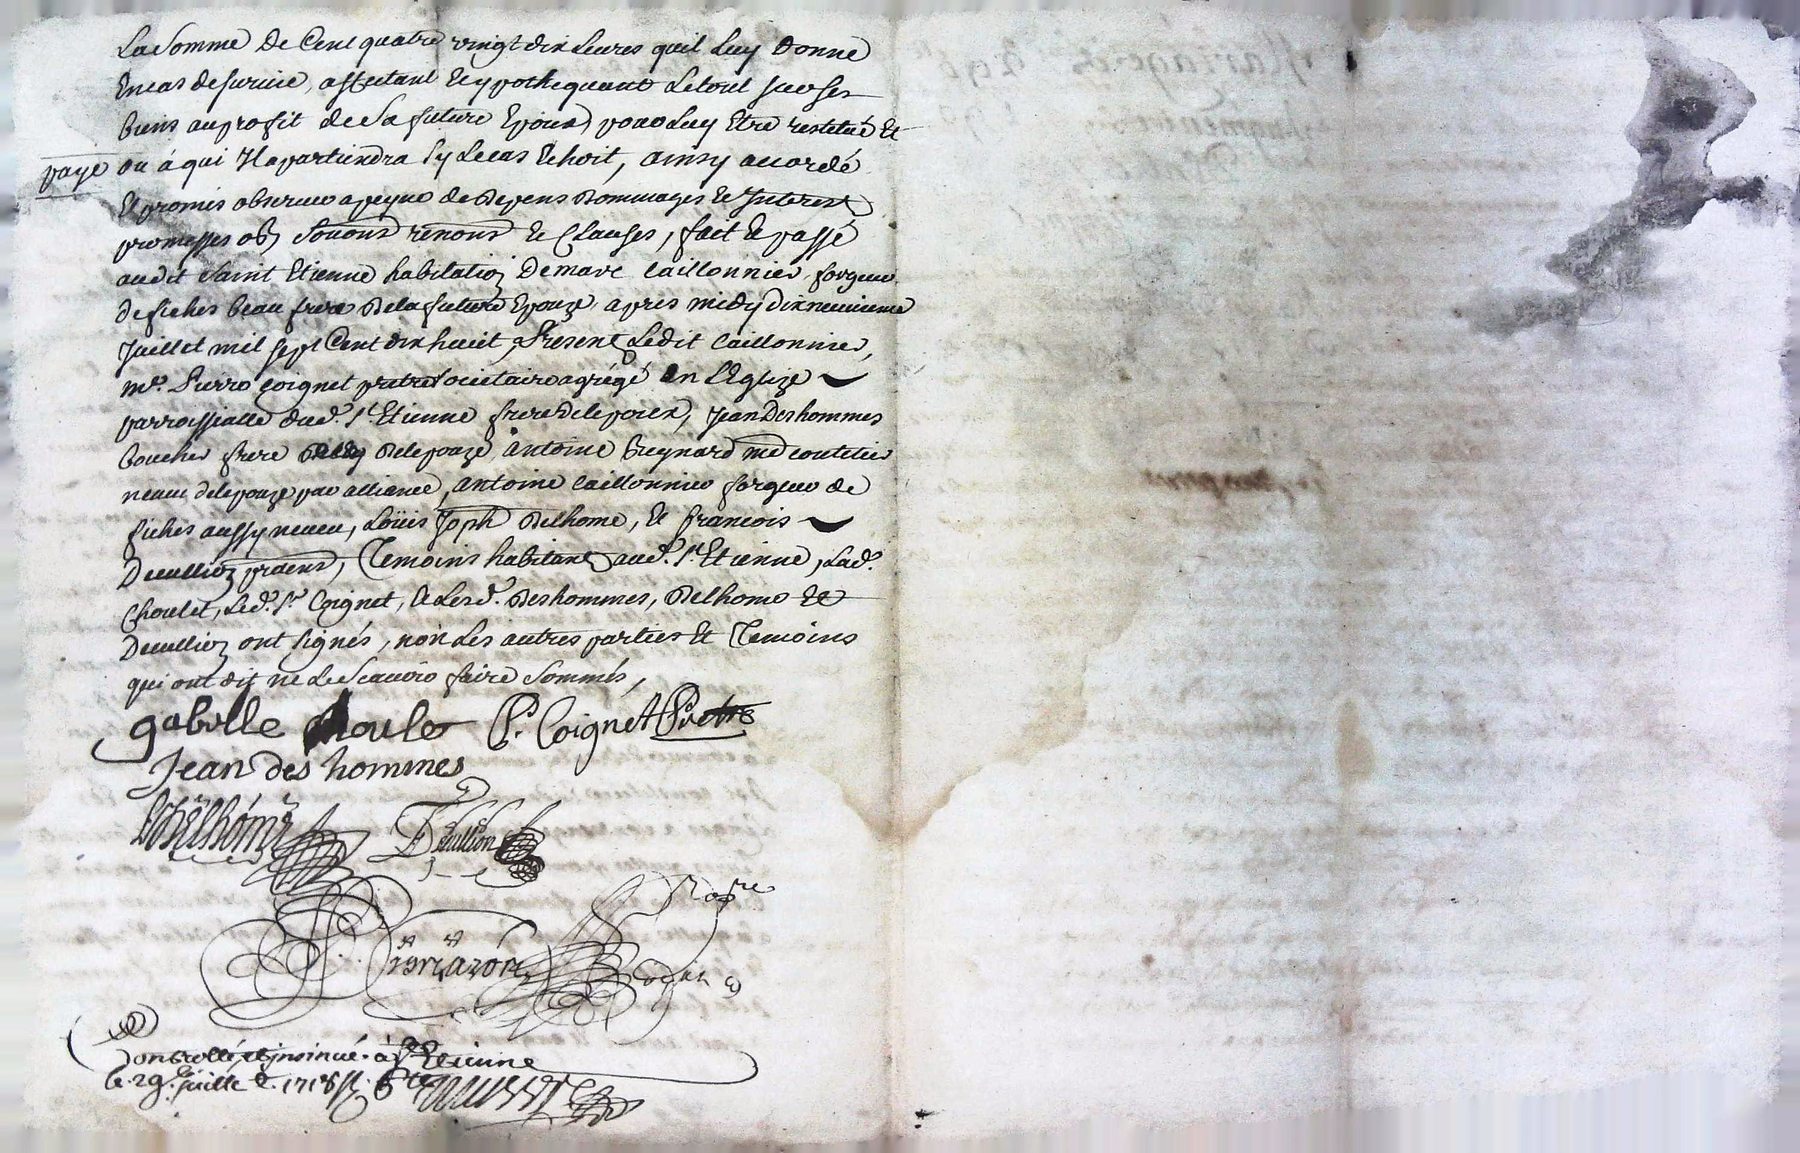 La Somme de Cent quatre vingt dix Livres quil Luy donne
En cas de survie, affectant Et ypothequant Le tout sur ses
biens au profit de Sa future Epouze pour Luy Etre restitué Et
payé ou à qui Il apartiendra sy Le cas Echoit, ainsy accordé
Et promis observer a peyne de Depens Dommages Et Interest
promesses ob. soumons renons Et Clauses, fait Et passé
audit Saint Etienne habitation De marc Caillonnier forgeur
de fiches beau frere De la future Epouze apres midy dix neuvieme
Juillet mil sept Cent dix huit, Present Ledit Caillonnier,
mre. Pierre Coignet pretre societaire agrégé En L'Eglize
parroissialle dud. St. Etienne frere de lepoux, Jean Deshommes
boucher frere De lepouze, Antoine Preynard md coutelier
neveu de lepouze par alliance, Antoine Caillonnier forgeur de
fiches aussy neveu, Loüis Joph Delhome, Et francois
Decullion praens, Temoins habitans aud. St. Etienne, Lad.
Choulet, Led. Sr. Coignet, & Lesd. Deshommes, Delhome Et
Decullion ont signés, non Les autres parties Et Temoins
qui ont dit ne Le scavoir faire Sommés,
gabrille Choulet P. Coignet Pretre
Jean des hommes
LJDelhome Decullion
Nore
Royal
Controllé, et insinué à St Etienne
le. 29. Juille t. 1718